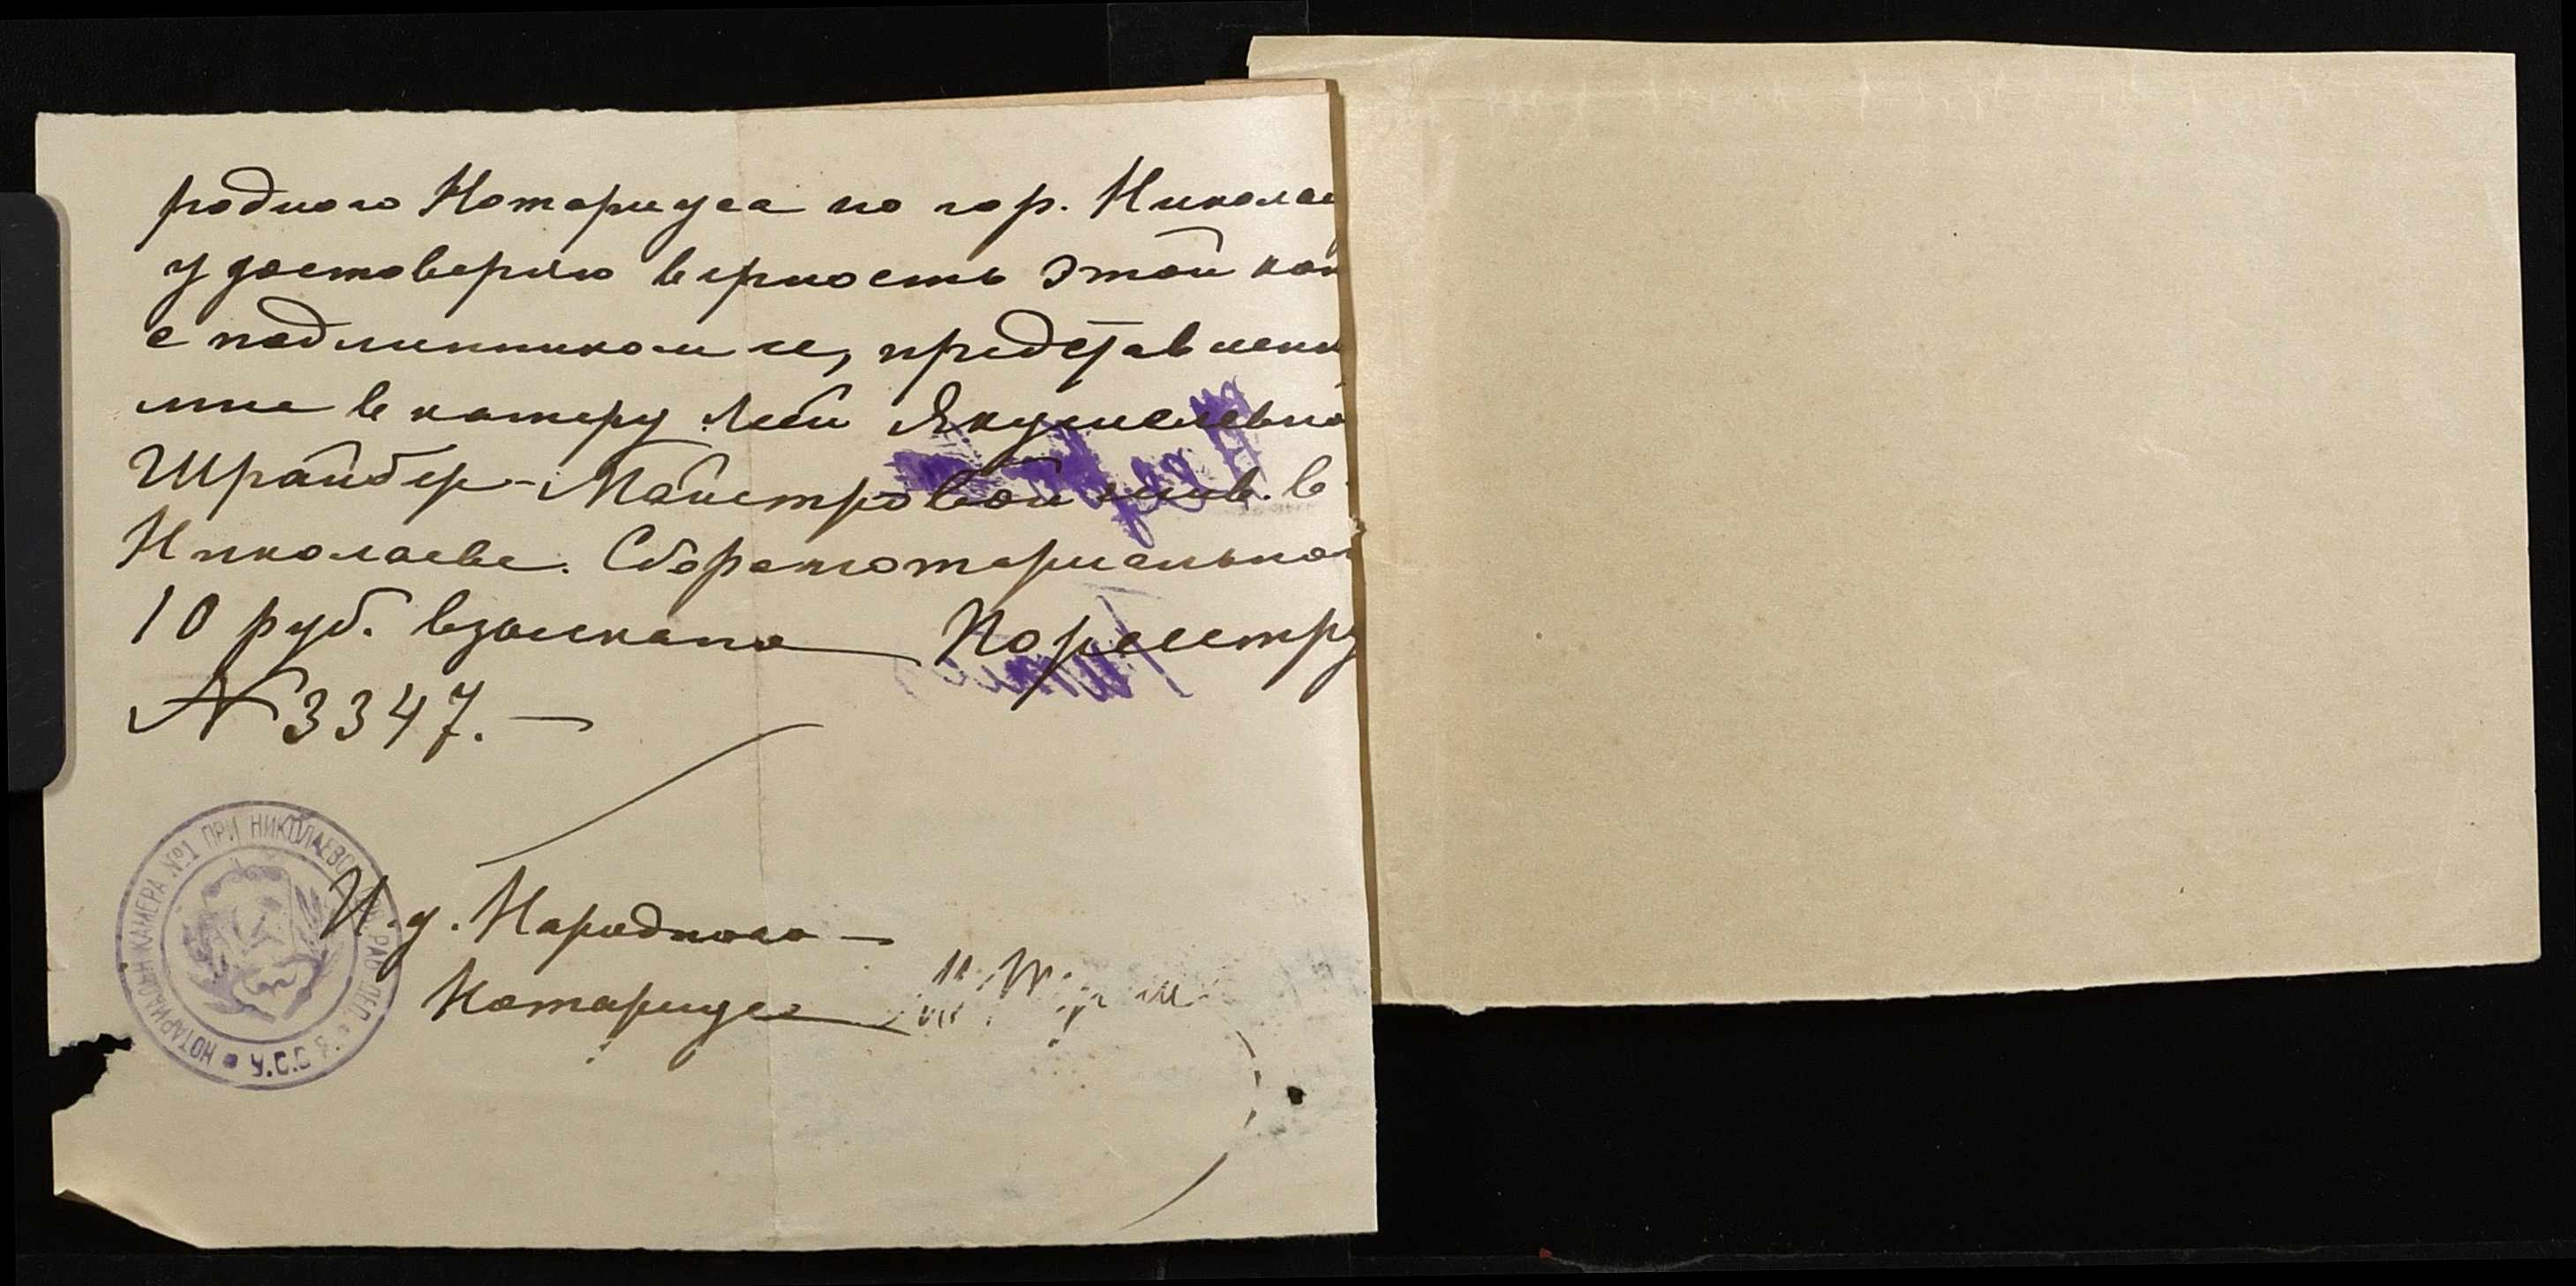 родного Нотариуса по гор. Никола
удостоверяю верность этой коп
с подлинником ее, представленн
мне в камеру Леей Якушелевно
Шрайбер-Майстровой жив. в
Николаеве. Сбора нотариальног
10 руб. взыскано По реестру
№ 3347. —
И.д. Народного —
Нотариуса
НОТАРИАЛЬН КАМЕРА №1 ПРИ НИКОЛАЕВС У.С.С.Р.